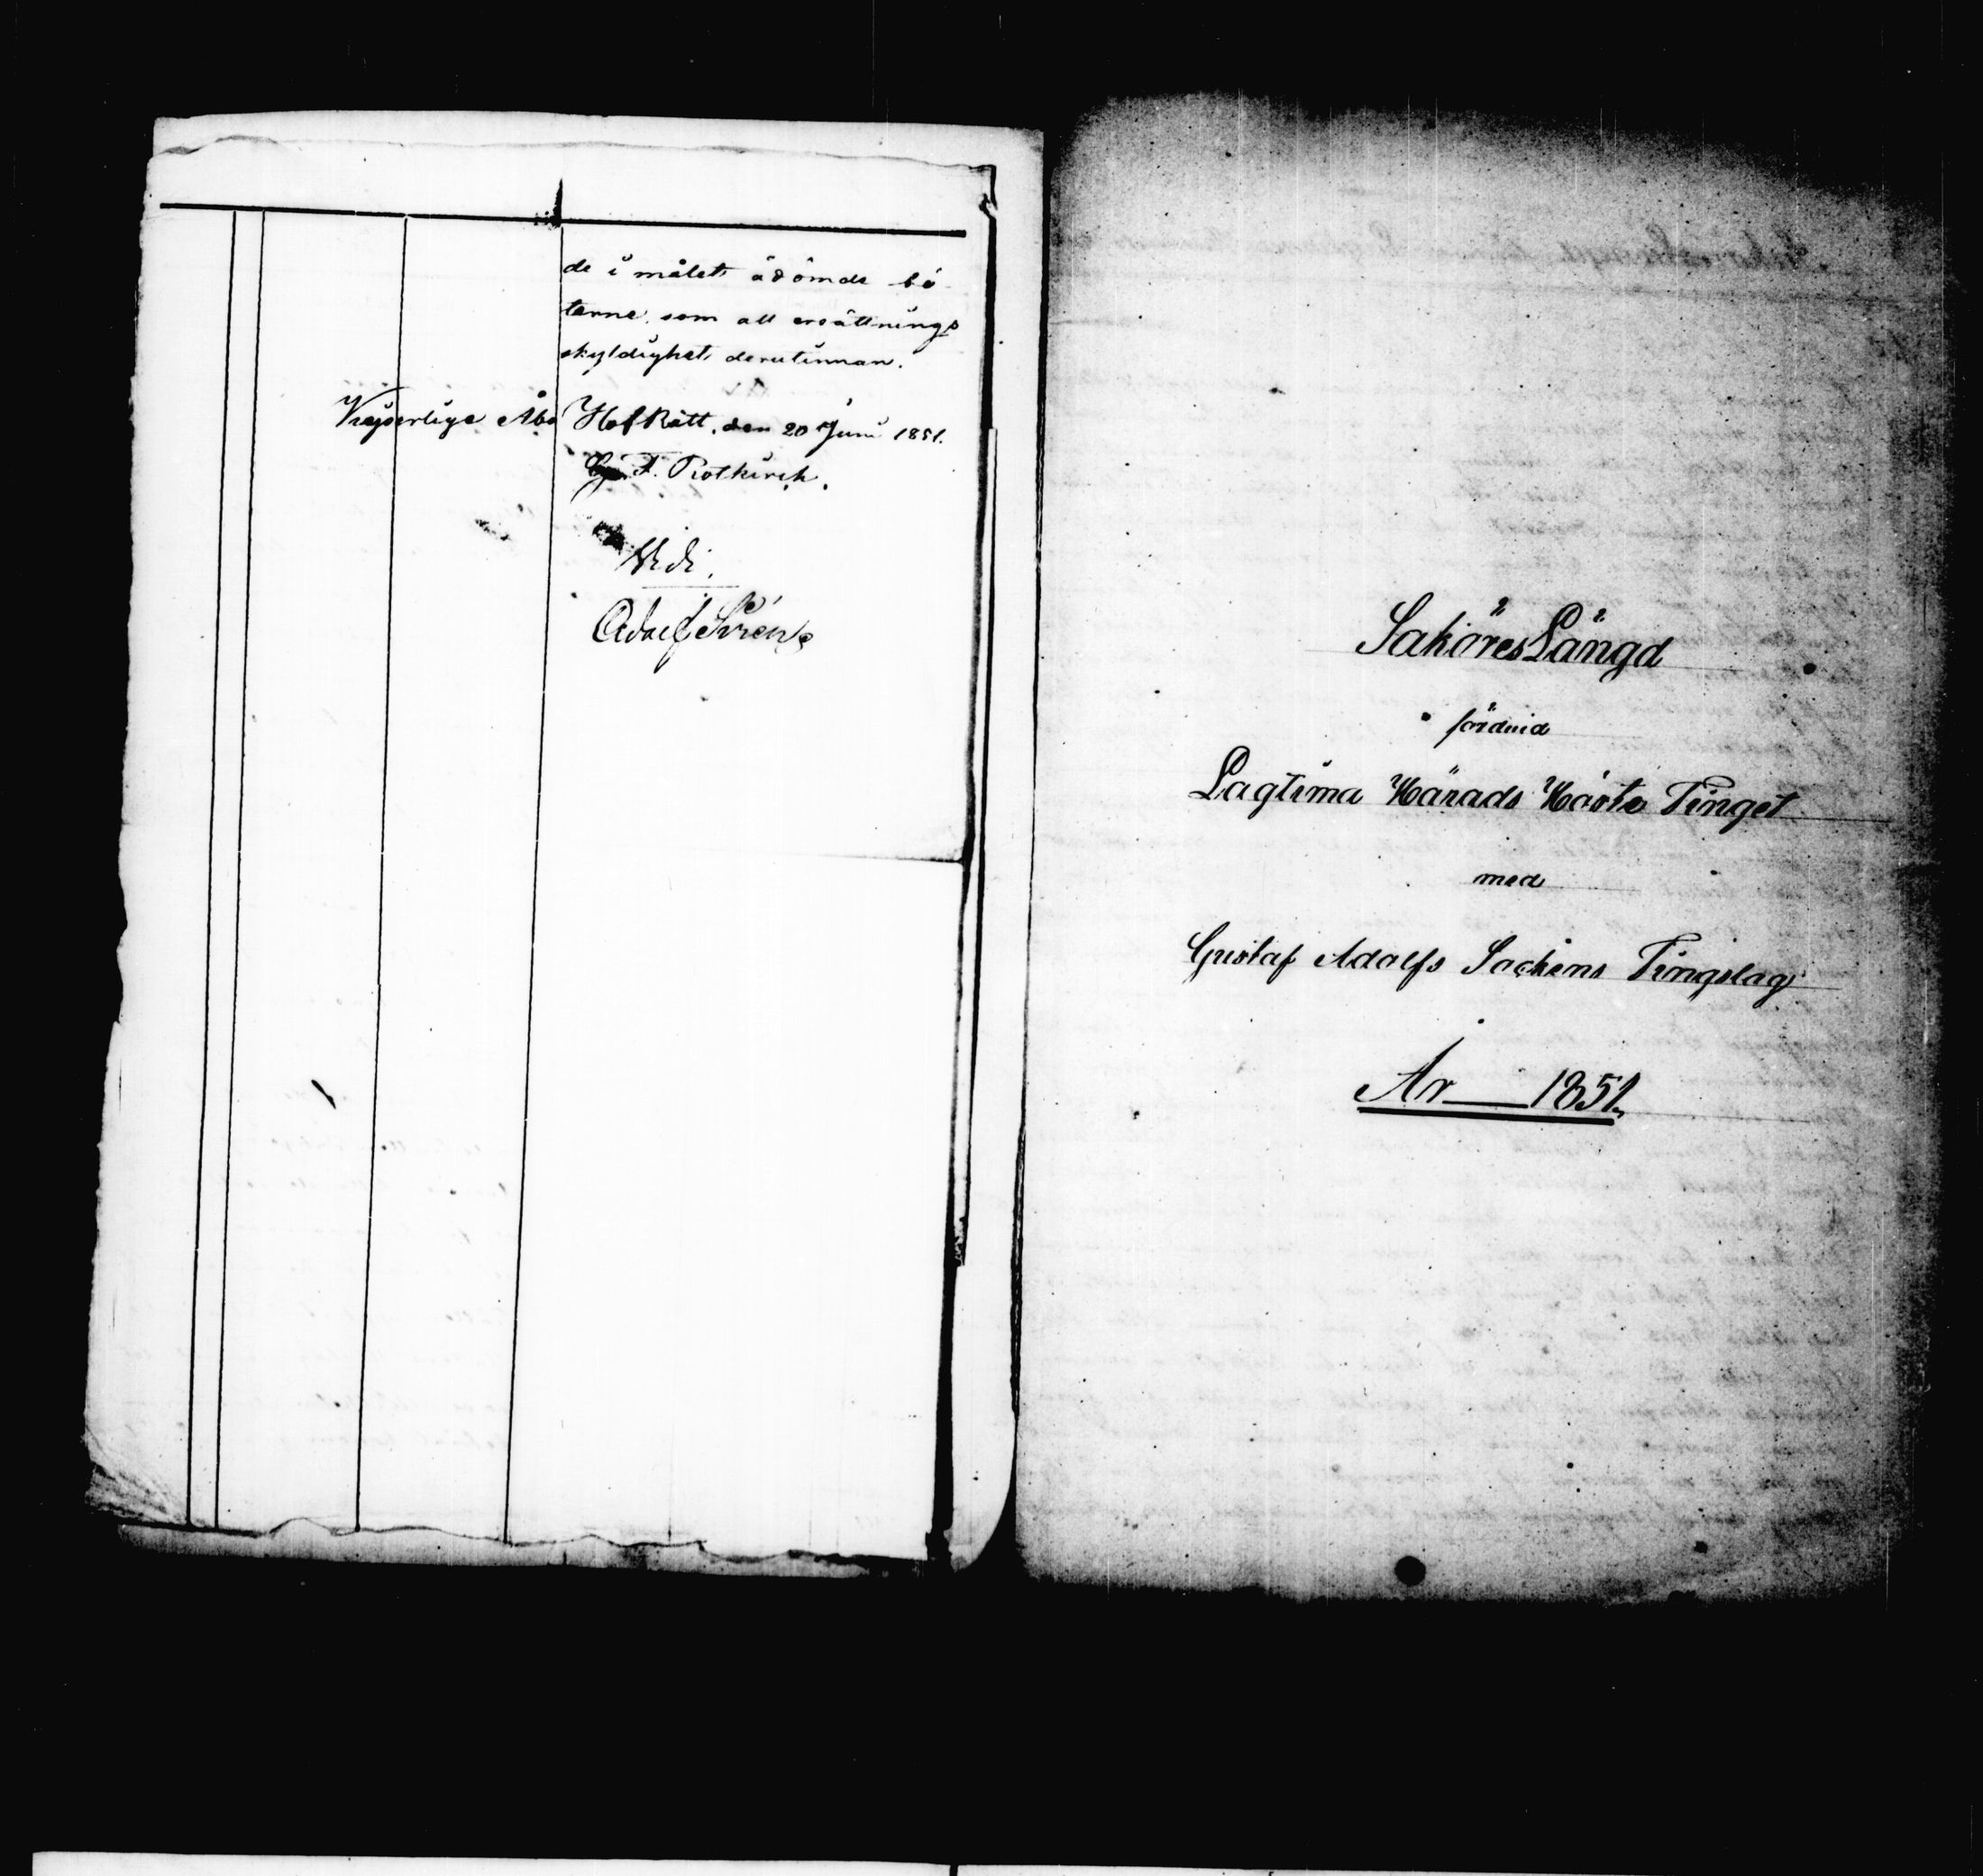 de i målet ådömde bö
terne, som all ersättnings
skyldighet derutinnan.
Kejserlige Åbo Hof Rätt, den 20 Juni 1851.
G. F. Rotkirch.
Vidi.
Adolf
SakőresLängd
förd vid
Lagtima Härads Höste Tinget
med
Gustaf Adolfs Sockens Tingslag
År 1851.